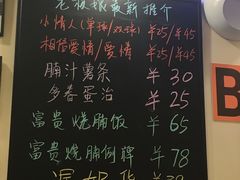 老板娘最新推介
小情人(单球/双球) ¥25/¥45
相信爱情/爱情 ¥25/¥45
腩汁薯条 ¥30
多春蛋治 ¥25
富贵烧腩饭 ¥65
富贵烧腩例牌 ¥78
B